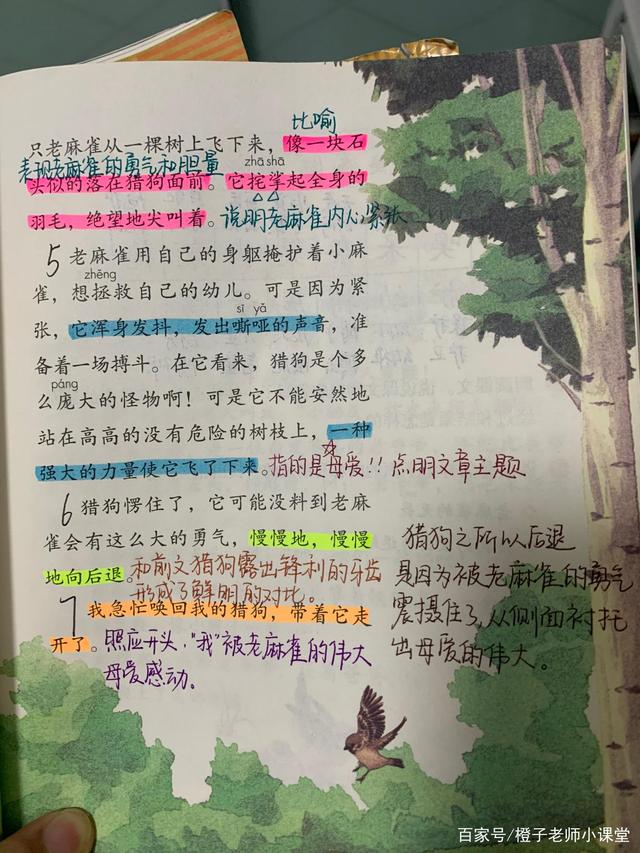 比喻
只老麻雀从一棵树上飞下来，像一块石
表现老麻雀的勇气和胆量
zhā shā
头似的落在猎狗面前。它挓挲起全身的
羽毛，绝望地尖叫着。说明老麻雀内心紧张
5 老麻雀用自己的身躯掩护着小麻
zhěng
雀，想拯救自己的幼儿。可是因为紧
sī yǎ
张，它浑身发抖，发出嘶哑的声音，准
备着一场搏斗。在它看来，猎狗是个多
páng
么庞大的怪物啊！可是它不能安然地
站在高高的没有危险的树枝上，一种
强大的力量使它飞了下来。指的是母爱!! 点明文章主题
6 猎狗愣住了，它可能没料到老麻
雀会有这么大的勇气，慢慢地，慢慢
地向后退。和前文猎狗露出锋利的牙齿
形成了鲜明的对比。
7 我急忙唤回我的猎狗，带着它走
开了。照应开头，"我"被老麻雀的伟大
母爱感动。
猎狗之所以后退
是因为被老麻雀的勇气
震摄住了，从侧面衬托
出母爱的伟大。
百家号/橙子老师小课堂